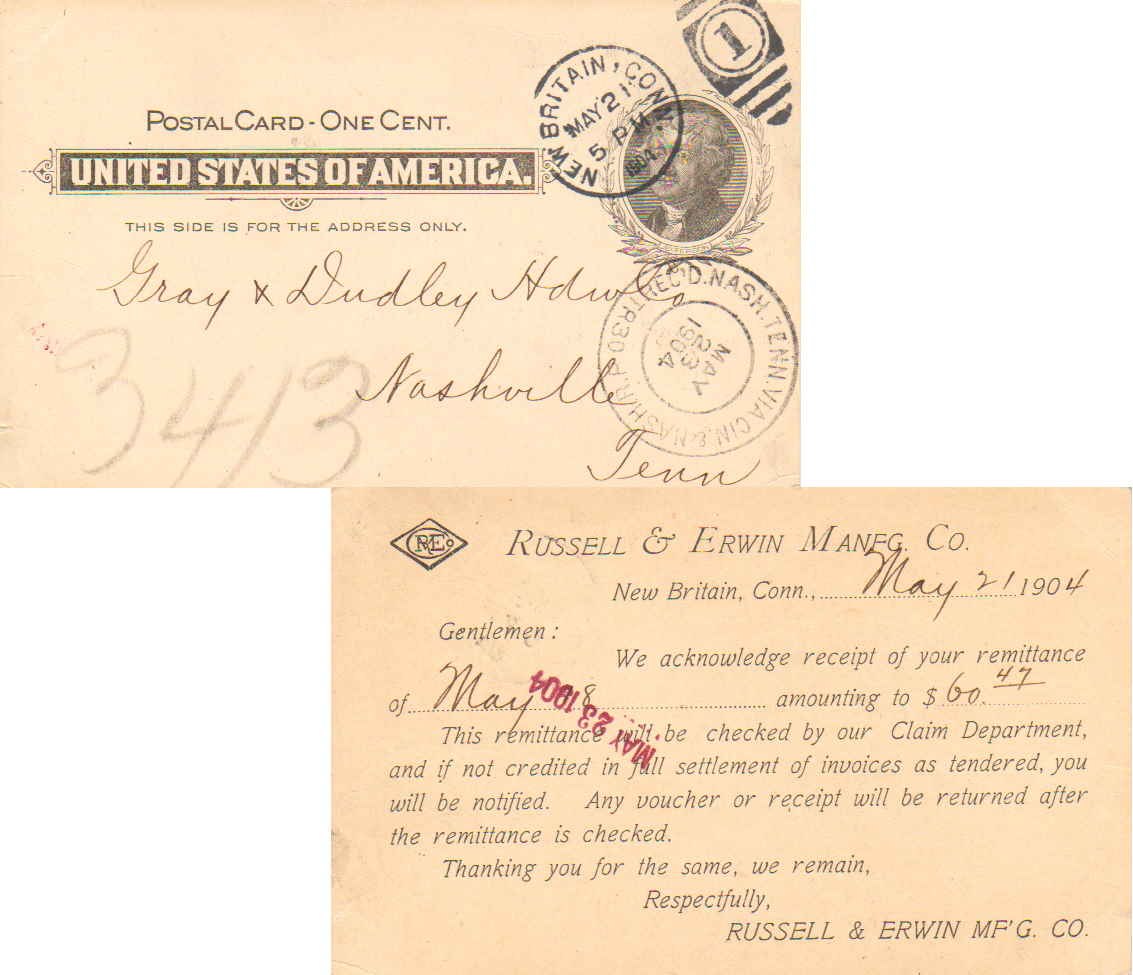 1
NEW BRITAIN, CONN.
MAY 21
5 PM
POSTAL CARD - ONE CENT.
UNITED STATES OF AMERICA.
THIS SIDE IS FOR THE ADDRESS ONLY.
Gray & Dudley Hdw Co
REC'D. NASH. TENN. VIA CIN. & NASH. R.P.O.
MAY
23
1904
3413
Nashville
Tenn
RECo
RUSSELL & ERWIN MANFG. CO.
New Britain, Conn., May 21 1904
Gentlemen:
We acknowledge receipt of your remittance
of May 18 amounting to $ 60.47
MAY 23 1904
This remittance will be checked by our Claim Department,
and if not credited in full settlement of invoices as tendered, you
will be notified. Any voucher or receipt will be returned after
the remittance is checked.
Thanking you for the same, we remain,
Respectfully,
RUSSELL & ERWIN MF'G. CO.